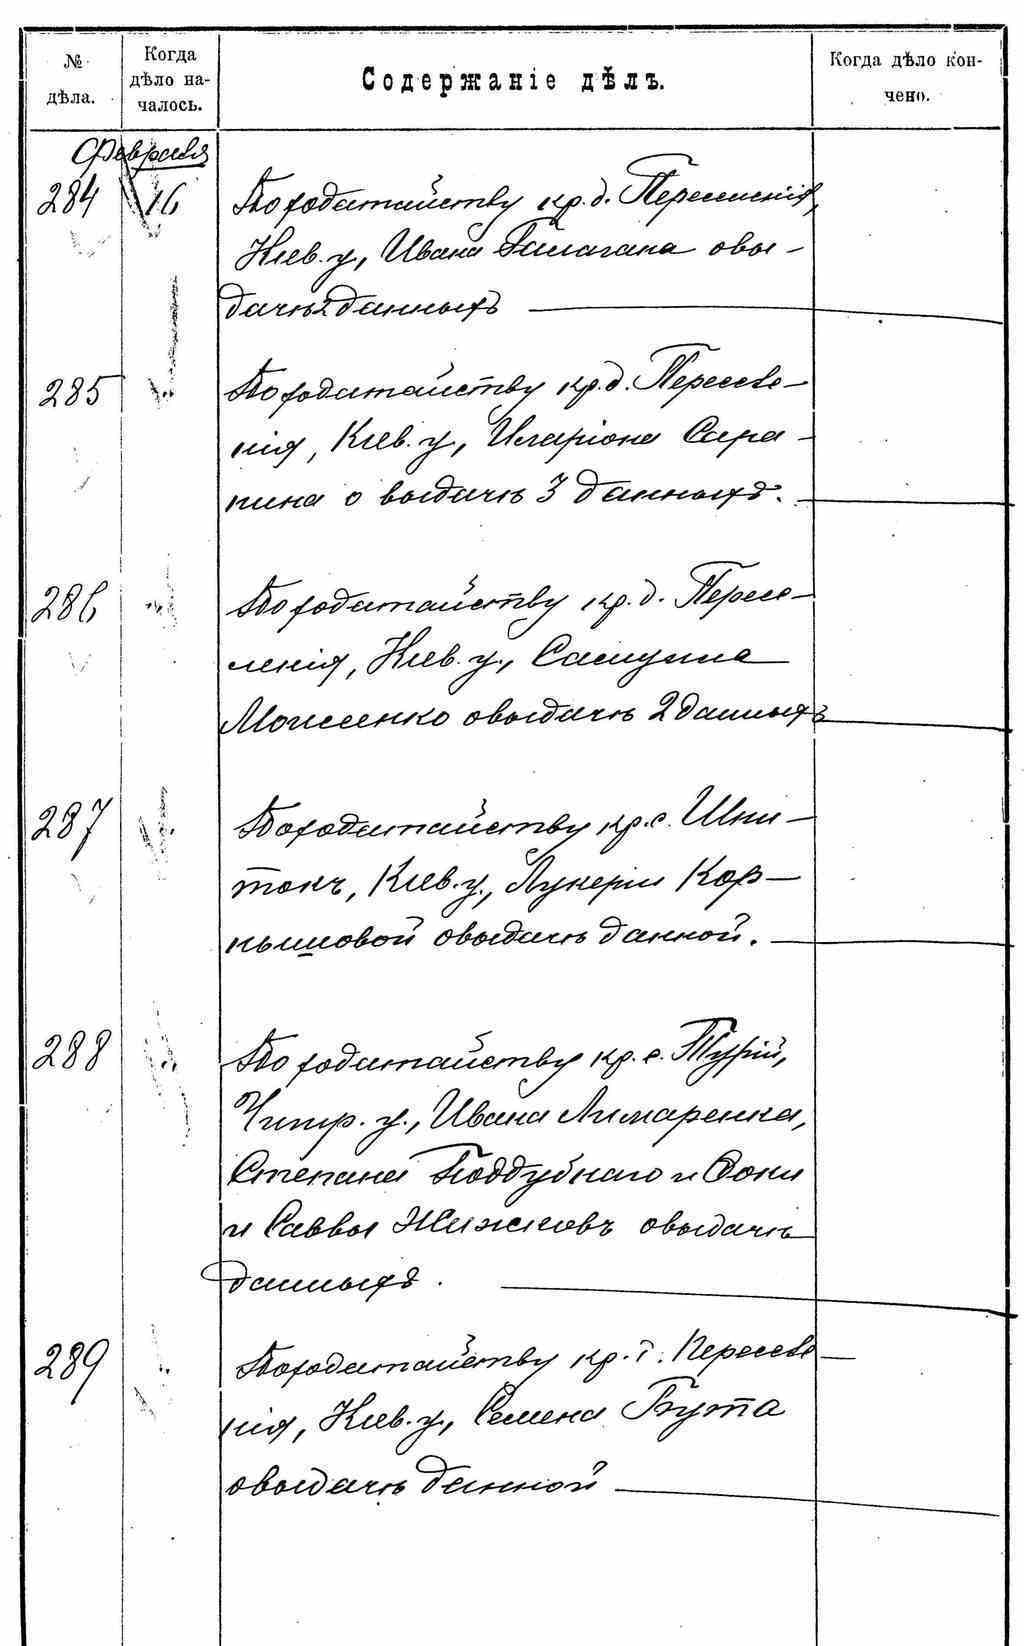 № дѣла.
Когда дѣло на-
чалось.
Содержаніе дѣлъ.
Когда дѣло кон-
чено.
Февраля
284 16 По ходатайству кр. д. Пересѣленія,
Кіев. у., Ивана Галагана о вы-
дачѣ 2 данныхъ
285 По ходатайству кр. д. Пересѣле-
нія, Кіев. у., Иларіона Сара-
пина о выдачѣ 3 данныхъ.
286 По ходатайству кр. д. Пересе-
ленія, Кіев. у., Самуила
Моисеенко о выдачѣ 2 данныхъ
287 По ходатайству кр. с. Шпи-
токъ, Кіев. у., Лукеріи Кор-
нышовой о выдачѣ данной.
288 По ходатайству кр. с. Турій,
Чигир. у., Ивана Лимаренка,
Степана Поддубнаго и Фоки
и Саввы Жижіевъ о выдачѣ
данныхъ.
289 По ходатайству кр. д. Переселе-
нія, Кіев. у., Семена Бута
о выдачѣ данной